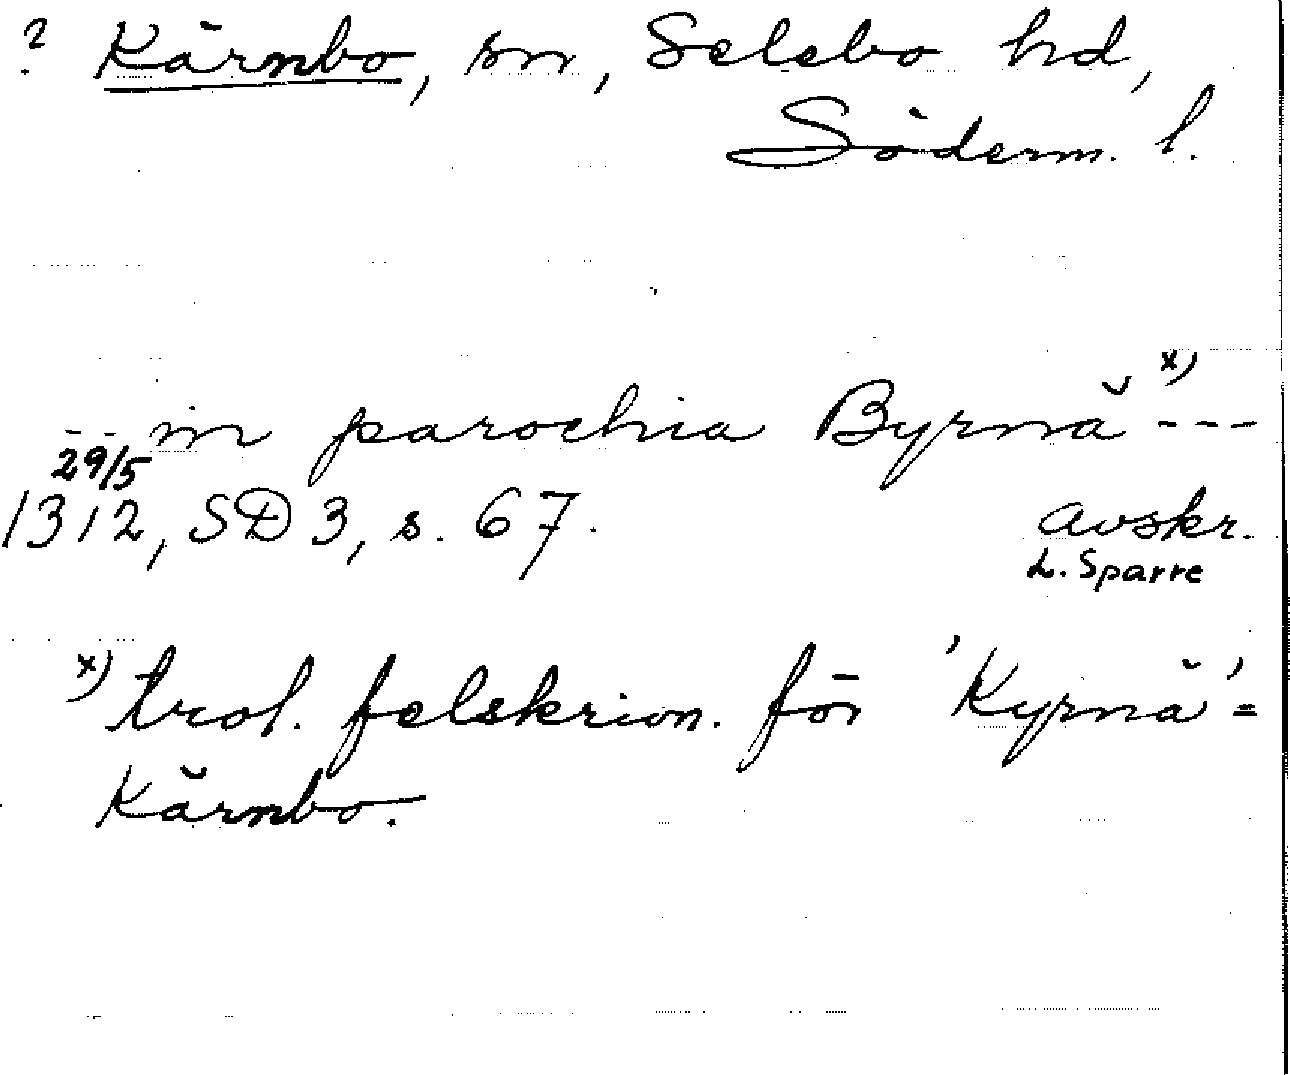 ? Kärnbo, sn, Selebo hd,
Söderm. l.
-- in parochia Byrnä x) ---
29/5
1312, SD 3, s. 67. avskr.
L. Sparre
x) trol. felskrivn. för 'Kyrnä' =
Kärnbo.